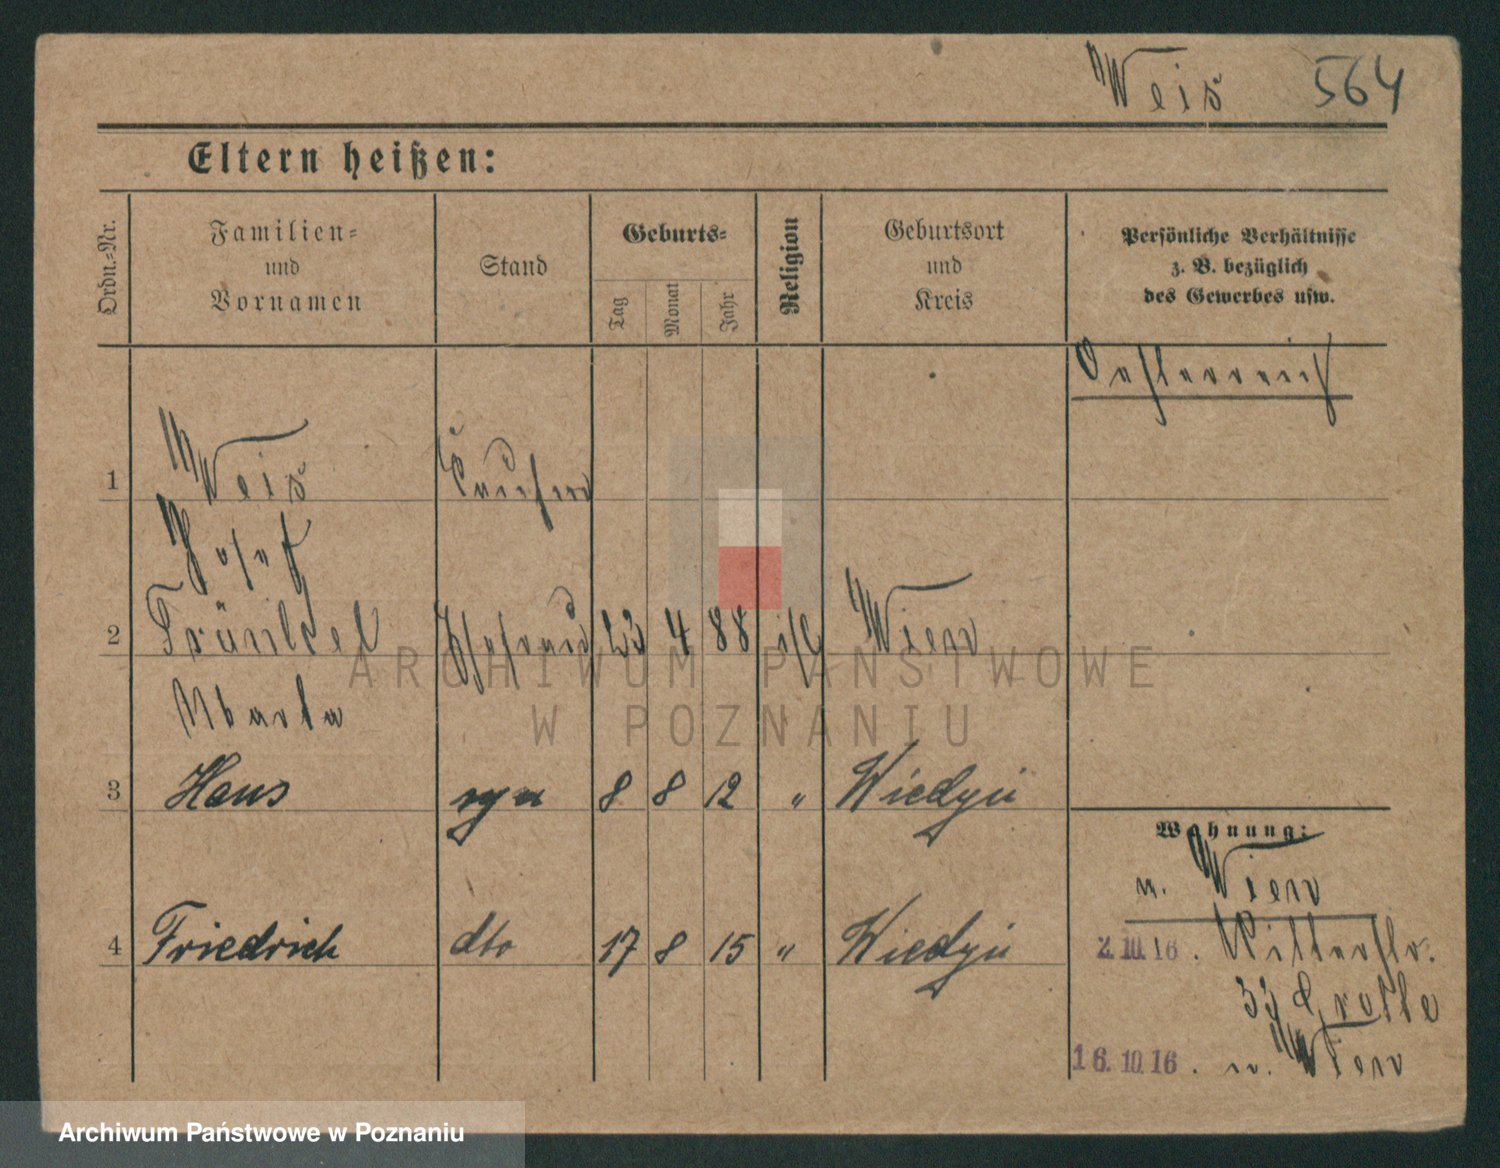 Weis 564
Eltern heißen:
Ordn.-Nr.
Familien-
und
Vornamen
Stand
Geburts-
Tag
Monat
Jahr
Religion
Geburtsort
und
Kreis
Persönliche Verhältnisse
z. B. bezüglich
des Gewerbes usw.
Oesterreich
1 Weis
Josef
2 Fränkel Ehefrau 23 4 88 Wien
Martha
3 Hans syn 8 8 12 " Wiedyń
4 Friedrich dto 17 8 15 " Wiedyń
Wohnung:
n. Wien
2.10.16. Ritterstr.
33
16.10.16. n. Wien
ARCHIWUM PAŃSTWOWE
W POZNANIU
Archiwum Państwowe w Poznaniu